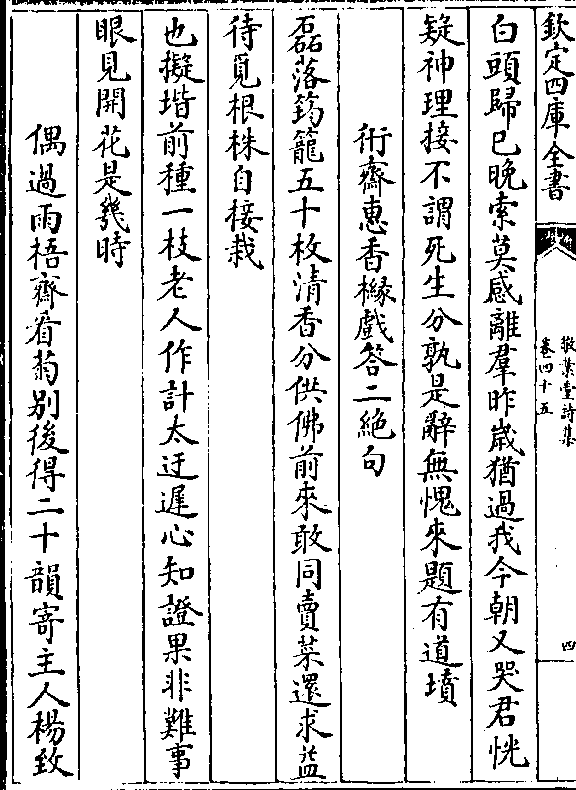 欽定四庫全書
敬業堂詩集
卷四十五
四
白頭歸已晚索莫感離羣昨嵗猶過我今朝又哭君恍
疑神理接不謂死生分孰是辭無愧來題有道墳
衎齋惠香櫞戲答二絶句
磊落筠籠五十枚清香分供佛前來敢同賣菜還求益
待覓根株自接栽
也擬堦前種一枝老人作計太迂遲心知證果非難事
眼見開花是幾時
偶過雨梧齋看菊别後得二十韻寄主人楊致